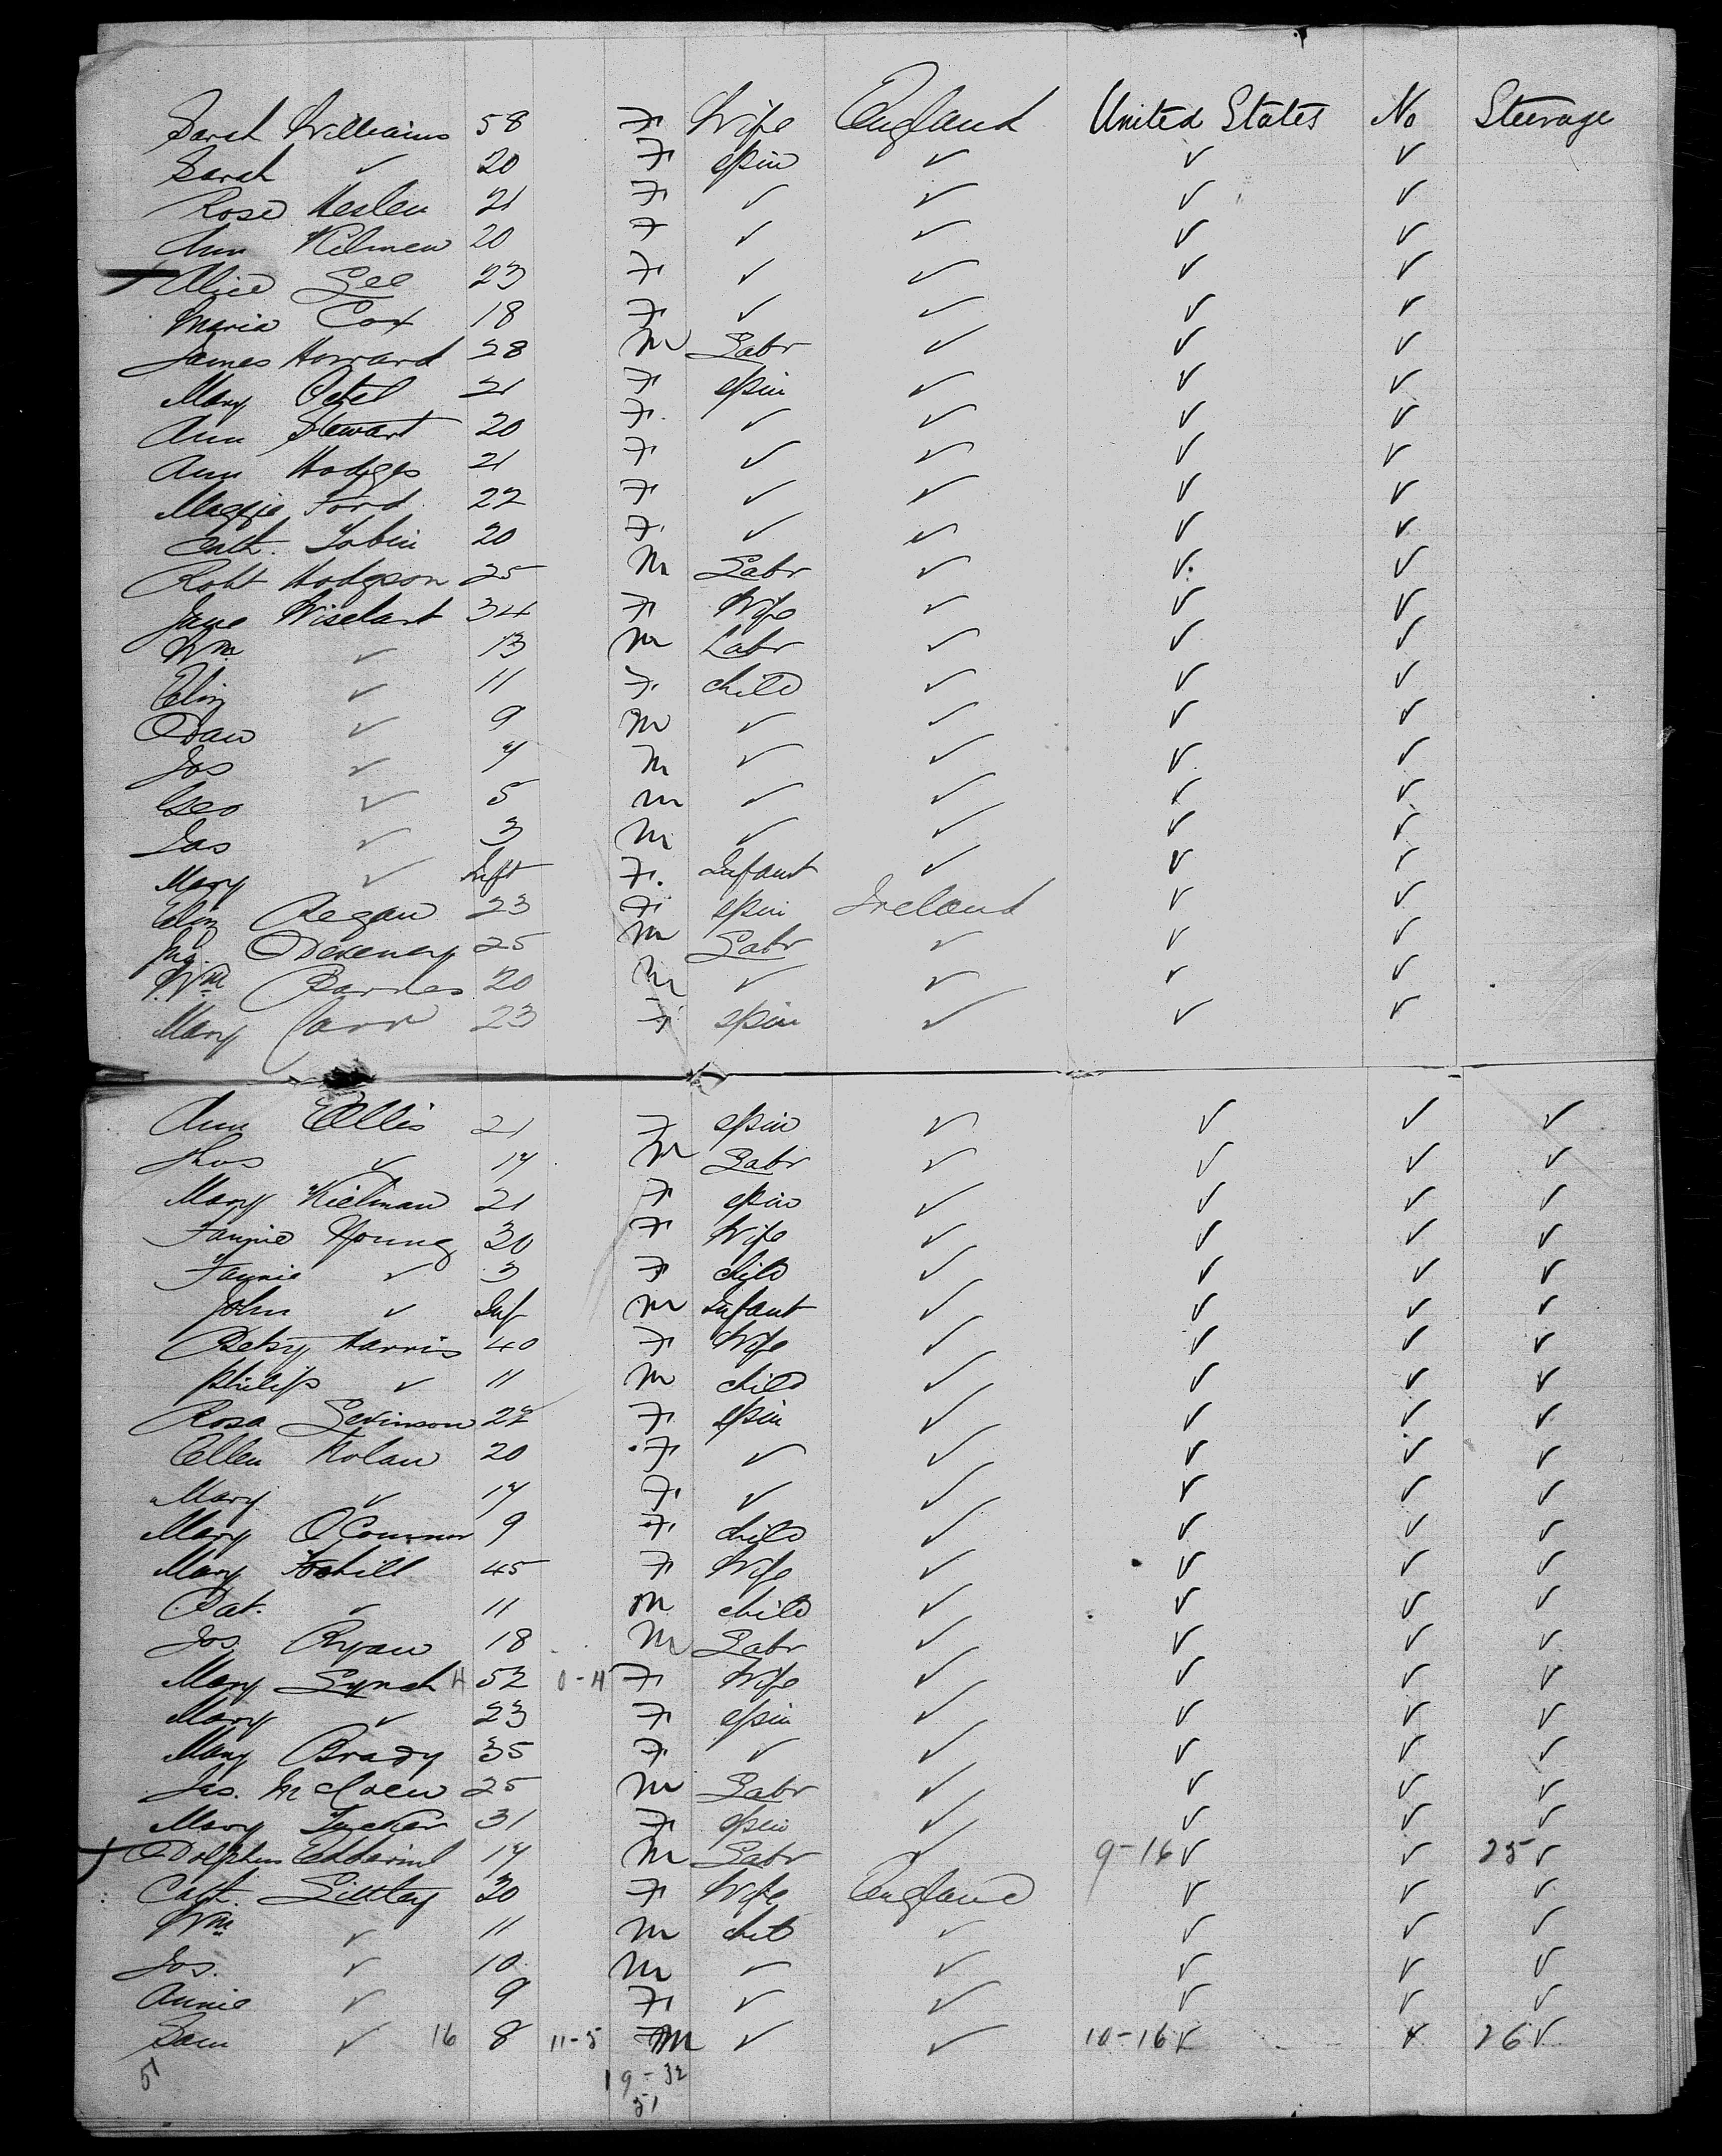 Sarah Williams 58 F Wife England United States No Steerage
Sarah ✓ 20 F spin ✓ ✓ ✓
Rose Heslen 21 F ✓ ✓ ✓ ✓
Ann Kilmen 20 F ✓ ✓ ✓ ✓
Alice Lee 23 F ✓ ✓ ✓ ✓
Maria Cox 18 F ✓ ✓ ✓ ✓
James Howard 28 M Labr ✓ ✓ ✓
Mary 21 F spin ✓ ✓ ✓
Ann Stewart 20 F ✓ ✓ ✓ ✓
Ann Hodges 21 F ✓ ✓ ✓ ✓
Maggie Ford 22 F ✓ ✓ ✓ ✓
Cath. Tobin 20 F ✓ ✓ ✓ ✓
Robt Hodgson 25 M Labr ✓ ✓ ✓
Jane Wisehart 34 F Wife ✓ ✓ ✓
Wm ✓ 13 M Labr ✓ ✓ ✓
Eliz ✓ 11 F child ✓ ✓ ✓
Dan ✓ 9 M ✓ ✓ ✓ ✓
Jos ✓ 7 M ✓ ✓ ✓ ✓
Geo ✓ 5 M ✓ ✓ ✓ ✓
Jas ✓ 3 M ✓ ✓ ✓ ✓
Mary ✓ Inft F Infant ✓ ✓ ✓
Eliz Regan 23 F spin Ireland ✓ ✓
Jno. Deveney 25 M Labr ✓ ✓ ✓
Wm Barnes 20 M ✓ ✓ ✓ ✓
Mary Carr 23 F spin ✓ ✓ ✓
Ann Ellis 21 F spin ✓ ✓ ✓ ✓
Thos ✓ 17 M Labr ✓ ✓ ✓ ✓
Mary Kielman 21 F spin ✓ ✓ ✓ ✓
Fannie Young 30 F Wife ✓ ✓ ✓ ✓
Fannie ✓ 3 F child ✓ ✓ ✓ ✓
John ✓ Inf M Infant ✓ ✓ ✓ ✓
Betsy Harris 40 F Wife ✓ ✓ ✓ ✓
Philip ✓ 11 M child ✓ ✓ ✓ ✓
Rosa Levinson 22 F spin ✓ ✓ ✓ ✓
Ellen Nolan 20 F ✓ ✓ ✓ ✓ ✓
Mary ✓ 17 F ✓ ✓ ✓ ✓ ✓
Mary O'Connor 9 F child ✓ ✓ ✓ ✓
Mary 45 F Wife ✓ ✓ ✓ ✓
Pat. ✓ 11 M child ✓ ✓ ✓ ✓
Jos. Ryan 18 M Labr ✓ ✓ ✓ ✓
Mary Lynch 4 52 0-4 F Wife ✓ ✓ ✓ ✓
Mary ✓ 23 F spin ✓ ✓ ✓ ✓
Mary Brady 35 F ✓ ✓ ✓ ✓ ✓
Jas. 25 M Labr ✓ ✓ ✓ ✓
Mary Tucker 31 F spin ✓ ✓ ✓ ✓
Dolphus 17 M Labr ✓ 9-16 ✓ ✓ 25 ✓
Cath. 30 F Wife England ✓ ✓ ✓
Wm ✓ 11 M child ✓ ✓ ✓ ✓
Jos. ✓ 10 M ✓ ✓ ✓ ✓ ✓
Annie ✓ 9 F ✓ ✓ ✓ ✓ ✓
Sam ✓ 16 8 11-5 M ✓ ✓ 10-16 ✓ ✓ 26 ✓
51 19-32
51